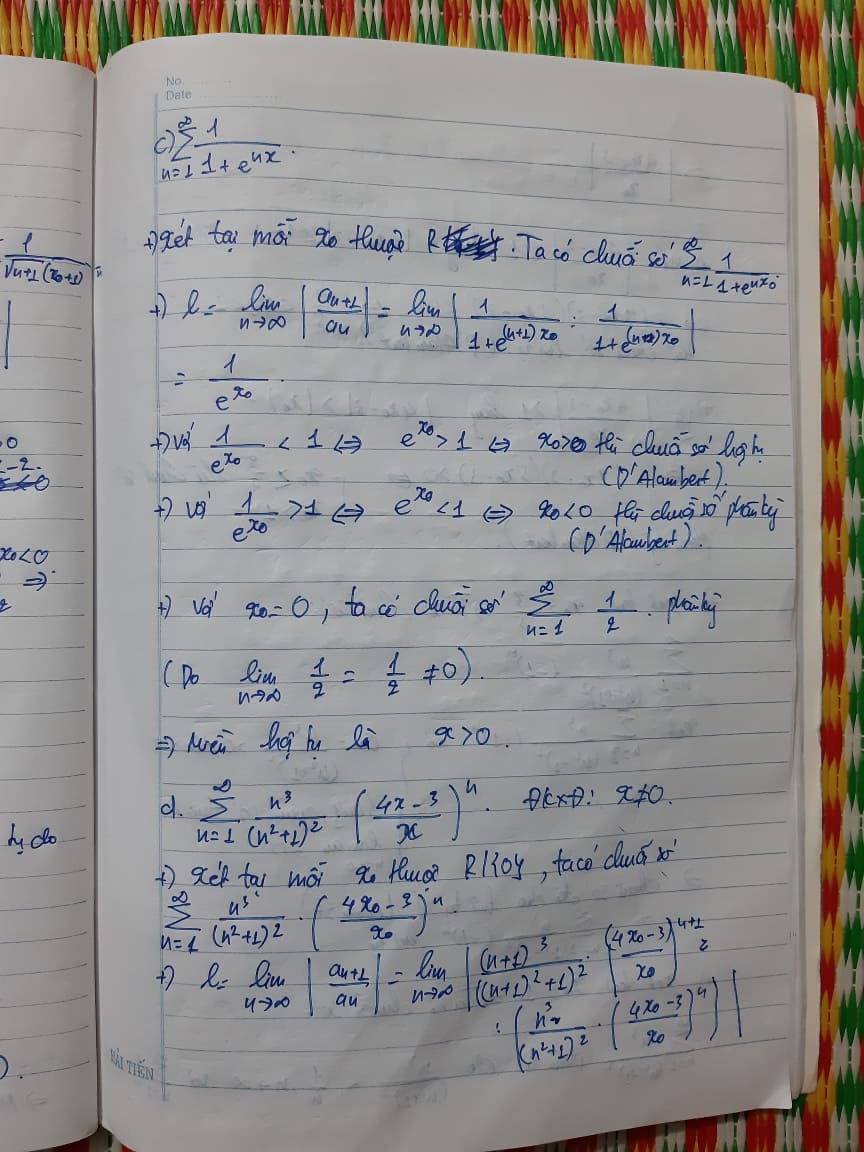 No.
Date
c) \sum_{n=1}^{∞} \frac{1}{1+e^{nx}}.
+) Xét tại mỗi x₀ thuộc R . Ta có chuỗi số \sum_{n=1}^{∞} \frac{1}{1+e^{nx_0}}
\frac{1}{\sqrt{n+1}(x_0+1)^n}
+) l = \lim_{n→∞} |\frac{a_{n+1}}{a_n}| = \lim_{n→∞} |\frac{1}{1+e^{(n+1)x_0}} : \frac{1}{1+e^{(n)x_0}}|
= \frac{1}{e^{x_0}}.
+) Với \frac{1}{e^{x_0}} < 1 ⇔ e^{x_0} > 1 ⇔ x₀>0 thì chuỗi số hội tụ
(D'Alambert).
+) Với \frac{1}{e^{x_0}} >1 ⇔ e^{x_0} <1 ⇔ x₀<0 thì chuỗi số phân kỳ
(D'Alambert).
x₀<0
⇒
+) Với x₀=0, ta có chuỗi số \sum_{n=1}^{∞} \frac{1}{2}. phân kỳ
(Do \lim_{n→∞} \frac{1}{2} = \frac{1}{2} ≠0).
⇒ Miền hội tụ là x>0.
d. \sum_{n=1}^{∞} \frac{n^3}{(n^2+1)^2} . (\frac{4x-3}{x})^n. ĐKXĐ: x≠0.
tụ do
+) Xét tại mỗi x₀ thuộc R\{0}, ta có chuỗi số
\sum_{n=1}^{∞} \frac{n^3}{(n^2+1)^2} . (\frac{4x_0-3}{x_0})^n.
+) l = \lim_{n→∞} |\frac{a_{n+1}}{a_n}| = \lim_{n→∞} |\frac{(n+1)^3}{((n+1)^2+1)^2} . (\frac{4x_0-3}{x_0})^{n+1}
: (\frac{n^3}{(n^2+1)^2} . (\frac{4x_0-3}{x_0})^n)|
HẢI TIẾN